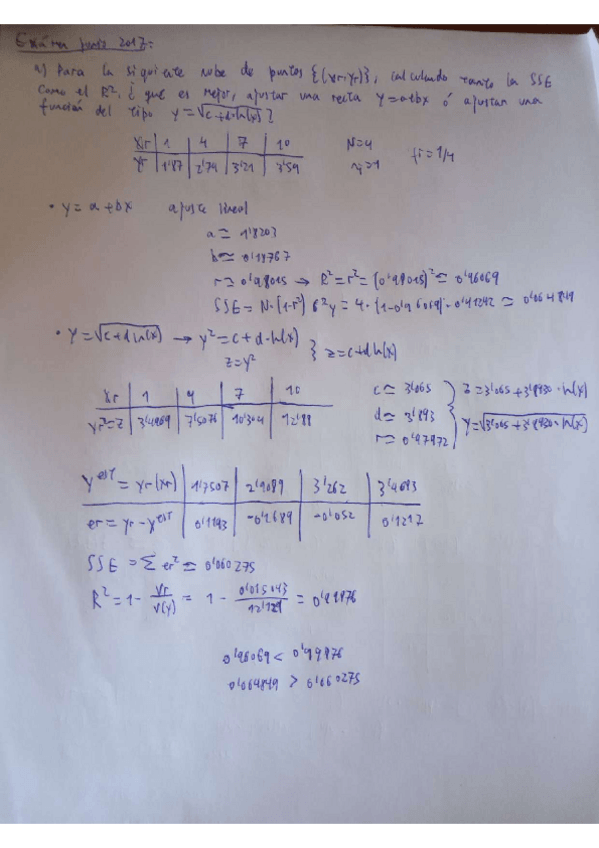 Exámen junio 2017:
a) Para la siguiente nube de puntos {(xr,yr)}, calculando tanto la SSE
como el R². ¿ que es mejor, ajustar una recta y=a+bx ó ajustar una
función del tipo y=√(c+d·ln(x))?
xr | 1 | 4 | 7 | 10 N=4 fi=1/4
yr | 1'87 | 2'79 | 3'21 | 3'59 ni=1
• y=a+bx ajuste lineal
a≃ 1'8203
b≃ 0'18767
r≃0'98015 → R²=r²=(0'98015)²≃ 0'96069
SSE= N·(1-r²) 6²y = 4·(1-0'96069)·0'41242 ≃ 0'064849
• y=√(c+d ln(x)) → y²=c+d·ln(x) } z=c+d ln(x)
z=y²
xr | 1 | 4 | 7 | 10
yr²=z | 3'4969 | 7'5076 | 10'304 | 12'88
c≃ 3'065 } z=3'065+3'8930·ln(x)
d≃ 3'893 } y=√(3'065+3'8930·ln(x))
r≃ 0'97972
y^est = yr(xr) | 1'7507 | 2'9089 | 3'262 | 3'4693
er=yr-y^est | 0'1193 | -0'1689 | -0'052 | 0'1217
SSE = Σ er² ≃ 0'060275
R²=1- Vr/V(y) = 1- 0'015043/12'129 = 0'99876
0'96069 < 0'99876
0'064849 > 0'060275